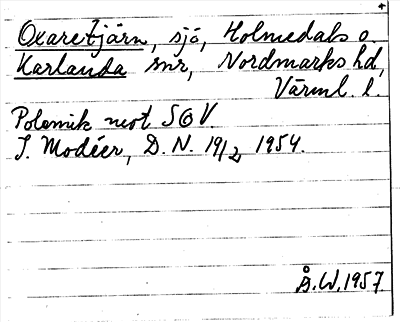 Oxaretjärn, sjö, Holmedals o.
Karlanda snr, Nordmarks hd,
Värml. l.
Polemik mot SOV.
I. Modéer, D. N. 19/2 1954.
Å. W. 1957.